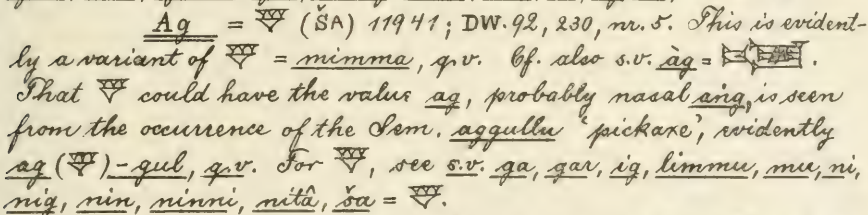 Ag = 𒐼 (ŠA) 11941; DW. 92, 230, nr. 5. This is evident-
ly a variant of 𒐼 = mimma, q.v. Cf. also s.v. àg =
That 𒐼 could have the value ag, probably nasal ang, is seen
from the occurrence of the Sem. aggullu 'pickaxe', evidently
ag (𒐼)-gul, q.v. For 𒐼, see s.v. ga, gar, ig, limmu, mu, ni,
nig, nin, ninni, nitâ, ša = 𒐼.